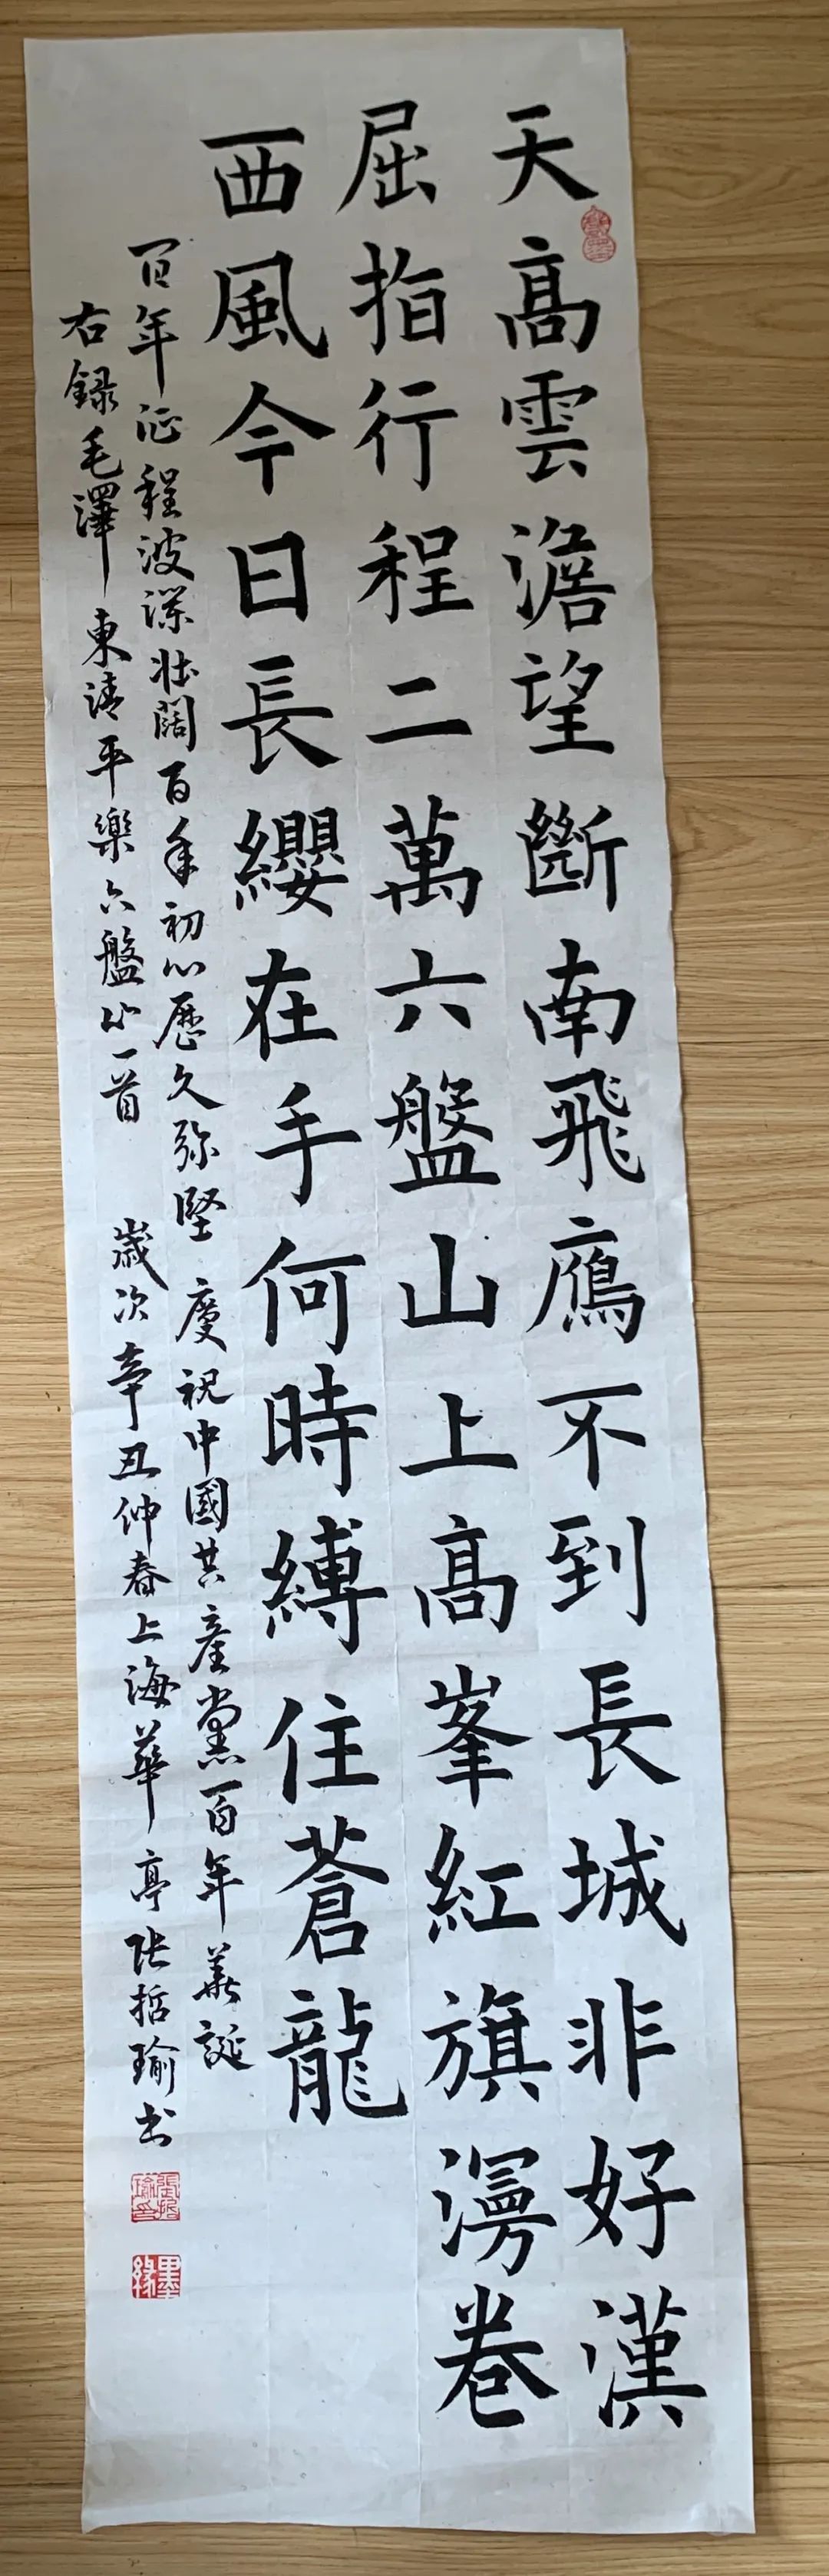 天高雲澹望斷南飛鴈不到長城非好漢
屈指行程二萬六盤山上高峯紅旗漫卷
西風今日長纓在手何時縛住蒼龍
百年征程波瀾壯闊百年初心歷久弥堅 慶祝中國共產黨一百年華誕
右録毛澤東清平樂六盤山一首 歲次辛丑仲春上海華亭张哲瑜书
張哲瑜印
墨緣